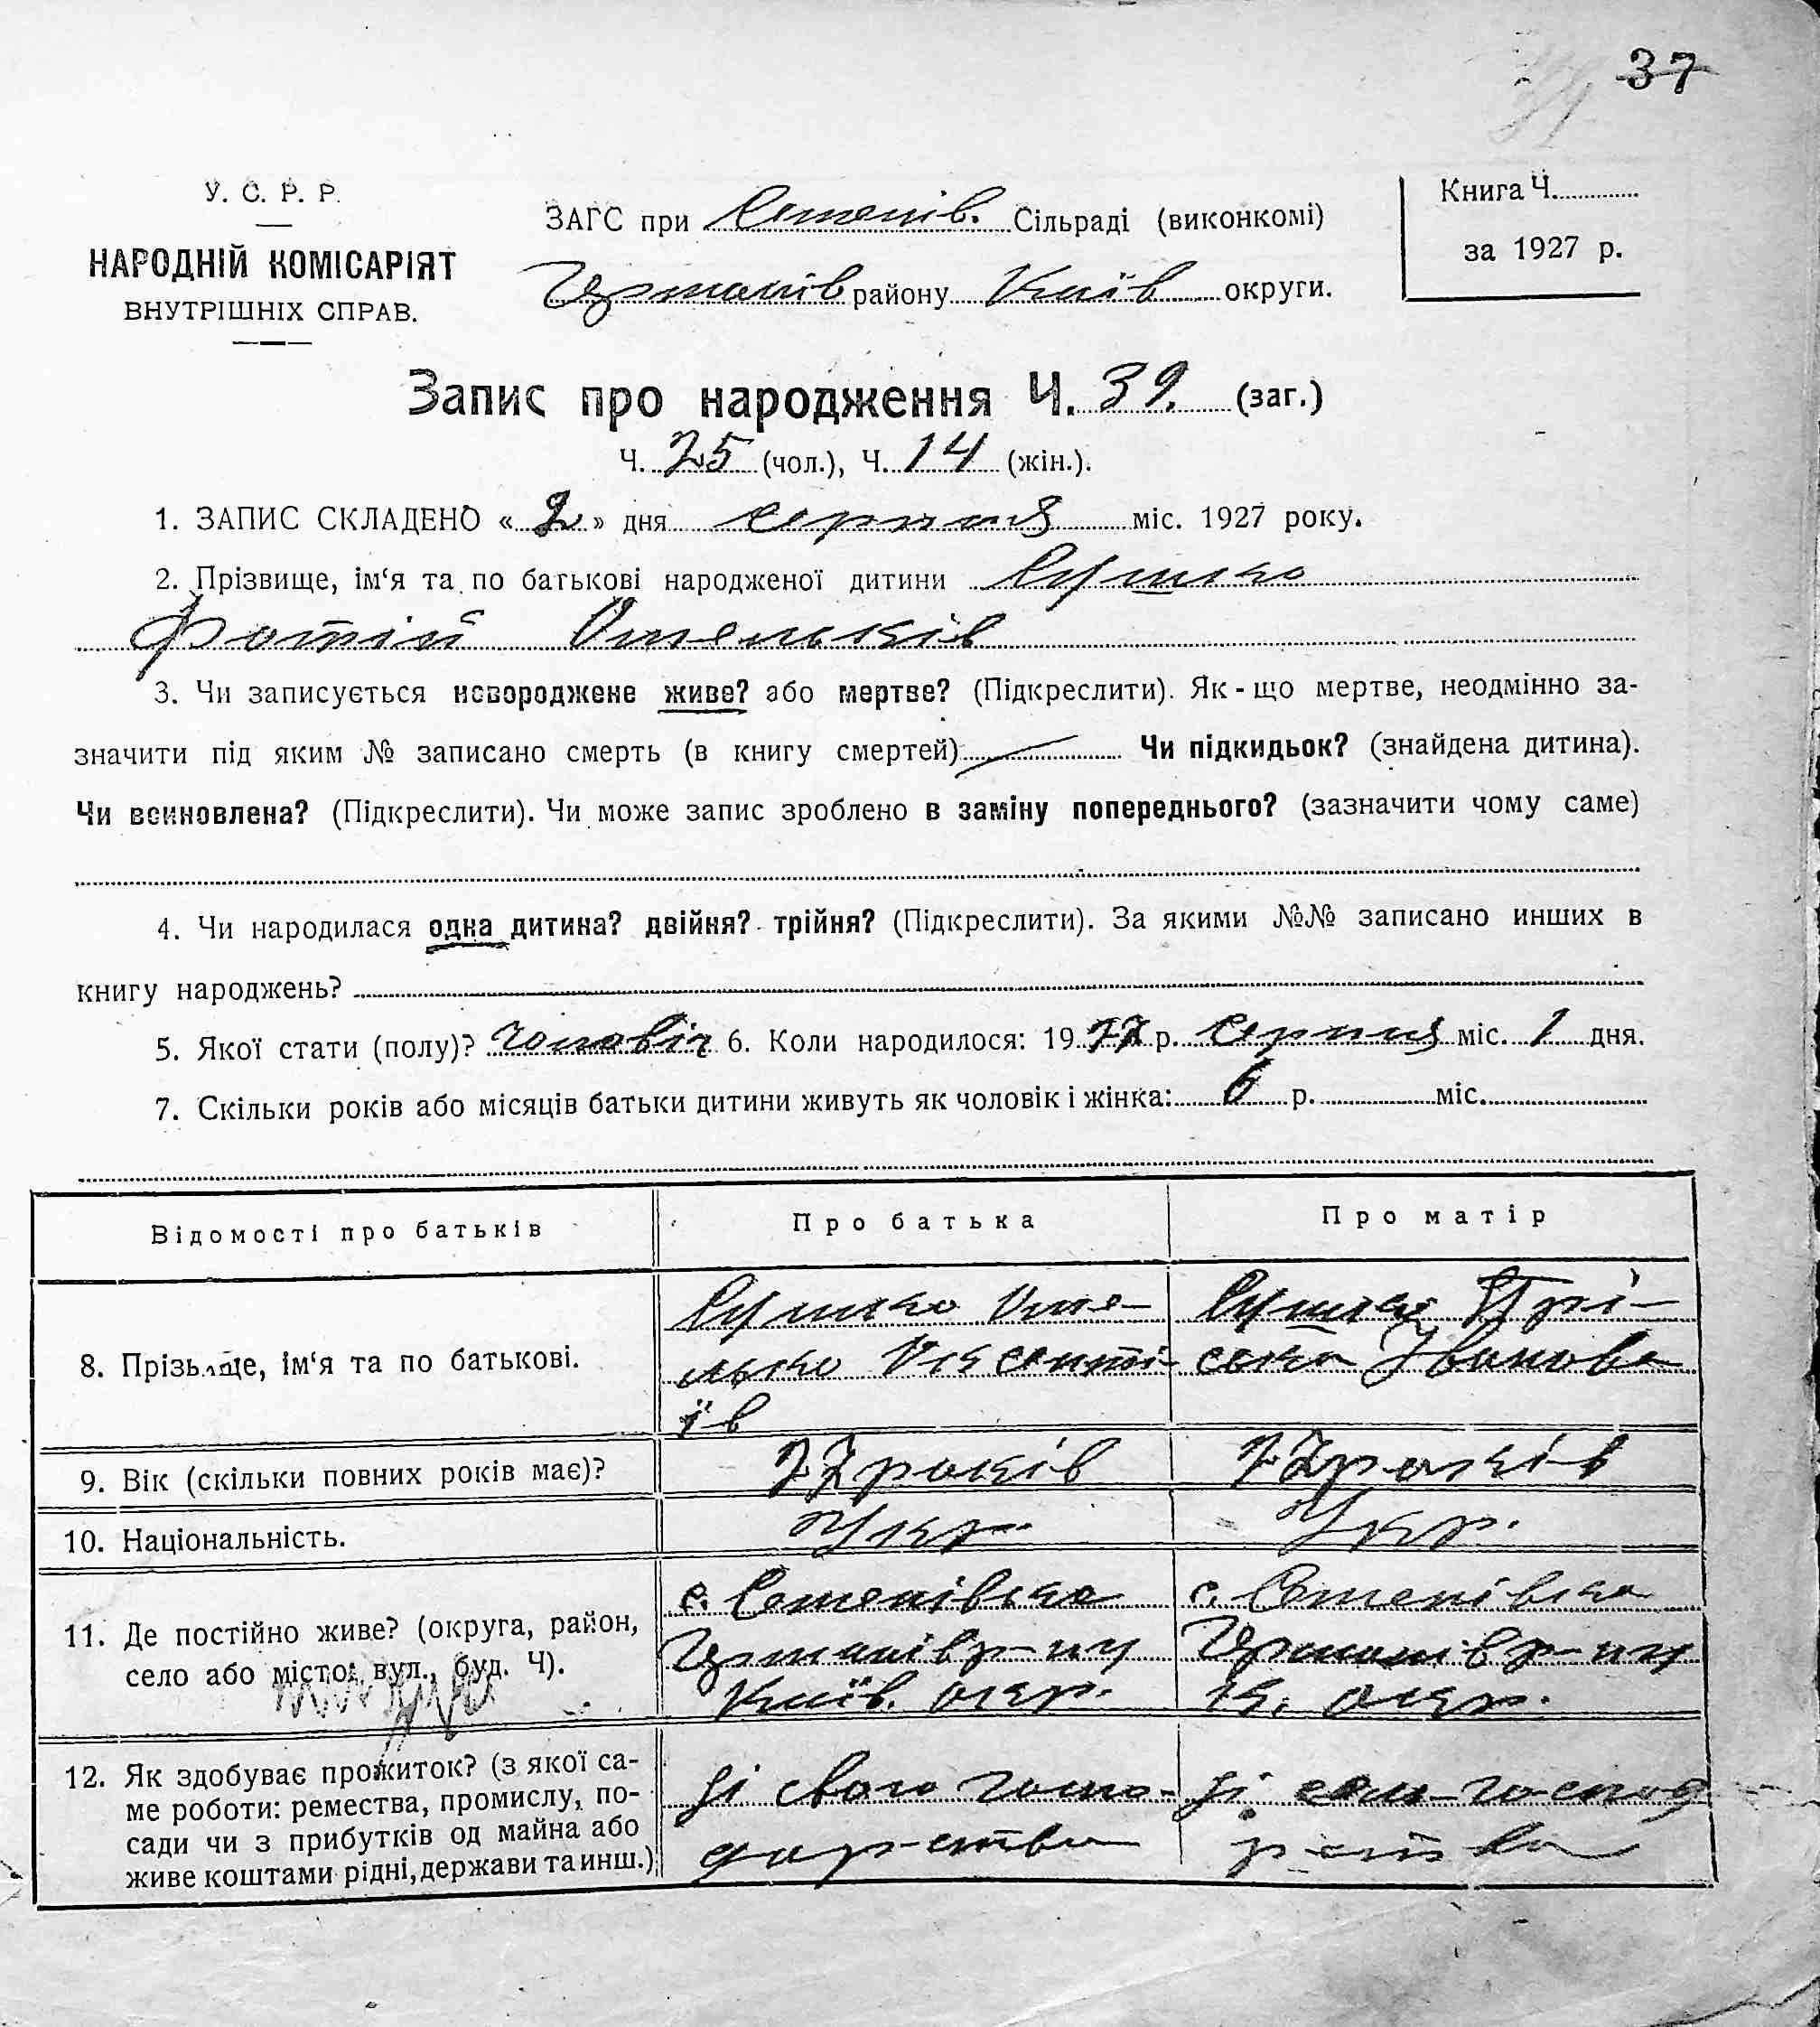 37
У. С. Р. Р.
НАРОДНІЙ КОМІСАРІЯТ
ВНУТРІШНІХ СПРАВ.
ЗАГС при Степанів. Сільраді (виконкомі)
району Київ округи.
Книга Ч.
за 1927 р.
Запис про народження Ч. 39. (заг.)
Ч. 25 (чол.), Ч. 14 (жін.).
1. ЗАПИС СКЛАДЕНО « 2 » дня серпня міс. 1927 року.
2. Прізвище, ім‘я та по батькові народженої дитини
Фотій Омельків
3. Чи записується новороджене живе? або мертве? (Підкреслити). Як-що мертве, неодмінно за-
значити під яким № записано смерть (в книгу смертей) Чи підкидьок? (знайдена дитина).
Чи всиновлена? (Підкреслити). Чи може запис зроблено в заміну попереднього? (зазначити чому саме)
4. Чи народилася одна дитина? двійня? трійня? (Підкреслити). За якими №№ записано инших в
книгу народжень?
5. Якої стати (полу)? чоловіч 6. Коли народилося: 1927 р. серпня міс. 1 дня.
7. Скільки років або місяців батьки дитини живуть як чоловік і жінка: 6 р. міс.
Відомості про батьків
Про батька
Про матір
8. Прізвище, ім‘я та по батькові.
Оме-
лько Вікенті-
їв
Прі-
ська Іванова
9. Вік (скільки повних років має)?
років
років
10. Національність.
Укр.
Укр.
11. Де постійно живе? (округа, район,
село або місто: вул., буд. Ч).
с. Степанівка
р-ну
Київ. окр.
с. Степанівка
р-ну
К. окр.
12. Як здобуває прожиток? (з якої са-
ме роботи: ремества, промислу, по-
сади чи з прибутків од майна або
живе коштами рідні, держави та инш.)
Зі свого госпо-
дарства
Зі госпо
рства